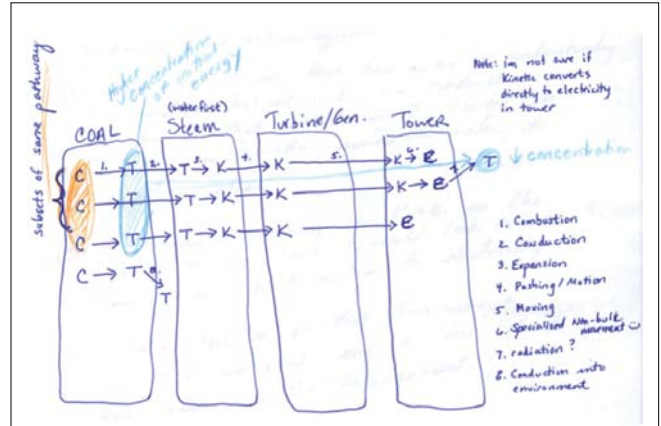 subsets of same pathway
Higher
concentration
of initial
energy
Note: im not sure if
Kinetic converts
directly to electricity
in tower
COAL
(water first)
Steam
Turbine/Gen.
Tower
C 1. T 2. T 3. K 4. K 5. K 6. E T ↓ concentration
C T T K K K E 7.
C T T K K E
C T 8. T
1. Combustion
2. Conduction
3. Expansion
4. Pushing/Motion
5. Moving
6. Specialized Non-bulk
movement
7. radiation?
8. Conduction into
environment